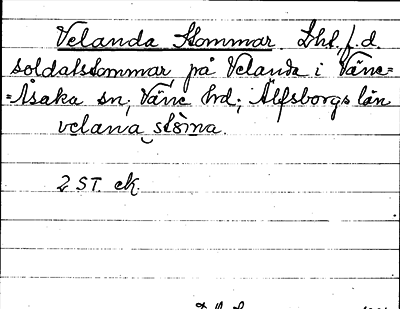 Velanda Stommar Lht, f.d.
soldatstommar på Velanda i Väne=
=Åsaka sn, Väne hrd; Älfsborgs län
velana stòma.
2 ST. ek.